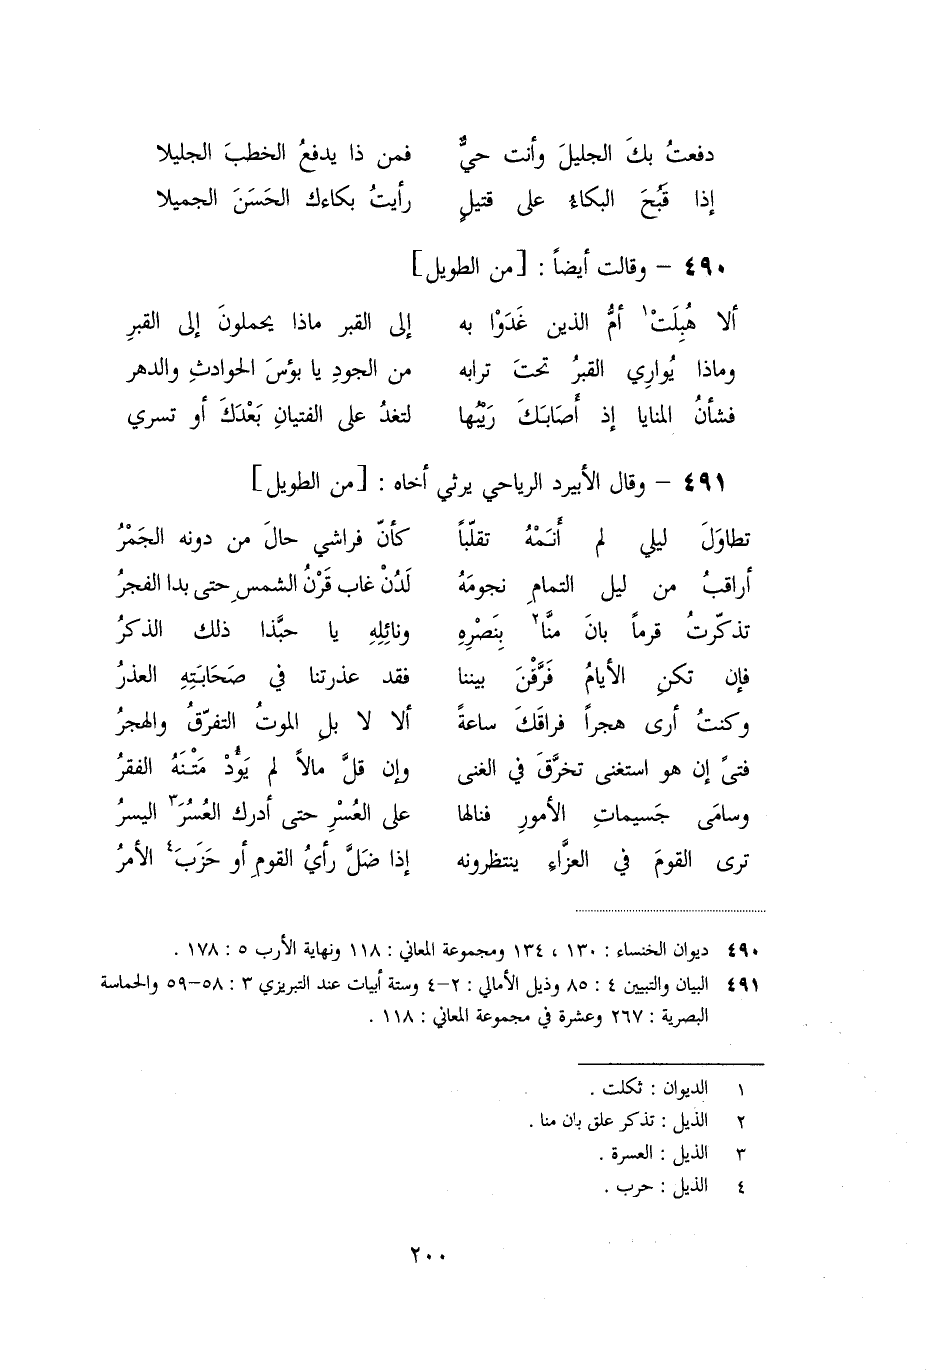 دفعتُ بكَ الجليلَ وأنت حيٌّ فمن ذا يدفعُ الخطبَ الجليلا
إذا قَبُحَ البكاءُ على قتيلٍ رأيتُ بكاءك الحَسَنَ الجميلا
٤٩٠ – وقالت أيضاً : [من الطويل]
ألا هُبِلَتْ١ أمُّ الذين غَدَوْا به إلى القبر ماذا يحملونَ إلى القبرِ
وماذا يُوارِي القبرُ تحتَ ترابه من الجودِ يا بؤسَ الحوادثِ والدهر
فشأنُ المنايا إذ أَصَابَكَ رَيْبُها لتغدُ على الفتيانِ بَعْدَكَ أو تسري
٤٩١ – وقال الأبيرد الرياحي يرثي أخاه : [من الطويل]
تطاوَلَ ليلي لم أَنَمْهُ تقلّباً كأنّ فراشي حالَ من دونه الجَمْرُ
أراقبُ من ليل التمامِ نجومَهُ لَدُنْ غاب قَرْنُ الشمسِ حتى بدا الفجرُ
تذكّرتُ قرماً بانَ منَّا٢ بِنَصْرِهِ ونائِلِهِ يا حبَّذا ذلك الذكرُ
فإن تكنِ الأيامُ فَرَّقْنَ بيننا فقد عذرتنا في صَحَابَتِهِ العذرُ
وكنتُ أرى هجراً فراقَكَ ساعةً ألا لا بلِ الموتُ التفرّقُ والهجرُ
فتىً إن هو استغنى تخرَّقَ في الغنى وإن قلَّ مالاً لم يَؤُدْ مَتْنَهُ الفقرُ
وسامَى جَسيماتِ الأمورِ فنالها على العُسْرِ حتى أدرك العُسُرَ٣ اليسرُ
ترى القومَ في العزَّاءِ ينتظرونه إذا ضَلَّ رأيُ القومِ أو حَزَبَ٤ الأمرُ
٤٩٠ ديوان الخنساء : ١٣٠ ، ١٣٤ ومجموعة المعاني : ١١٨ ونهاية الأرب ٥ : ١٧٨ .
٤٩١ البيان والتبيين ٤ : ٨٥ وذيل الأمالي : ٢–٤ وستة أبيات عند التبريزي ٣ : ٥٨–٥٩ والحماسة
البصرية : ٢٦٧ وعشرة في مجموعة المعاني : ١١٨ .
١ الديوان : ثكلت .
٢ الذيل : تذكر علق بان منا .
٣ الذيل : العسرة .
٤ الذيل : حرب .
٢٠٠